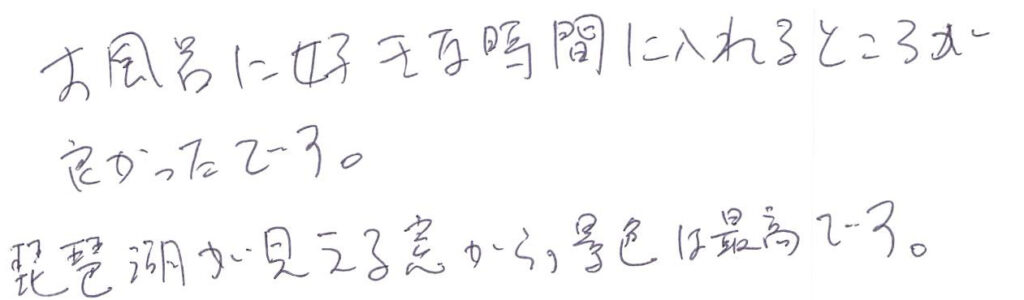 お風呂に好きな時間に入れるところが
良かったです。
琵琶湖が見える窓から,景色は最高です。